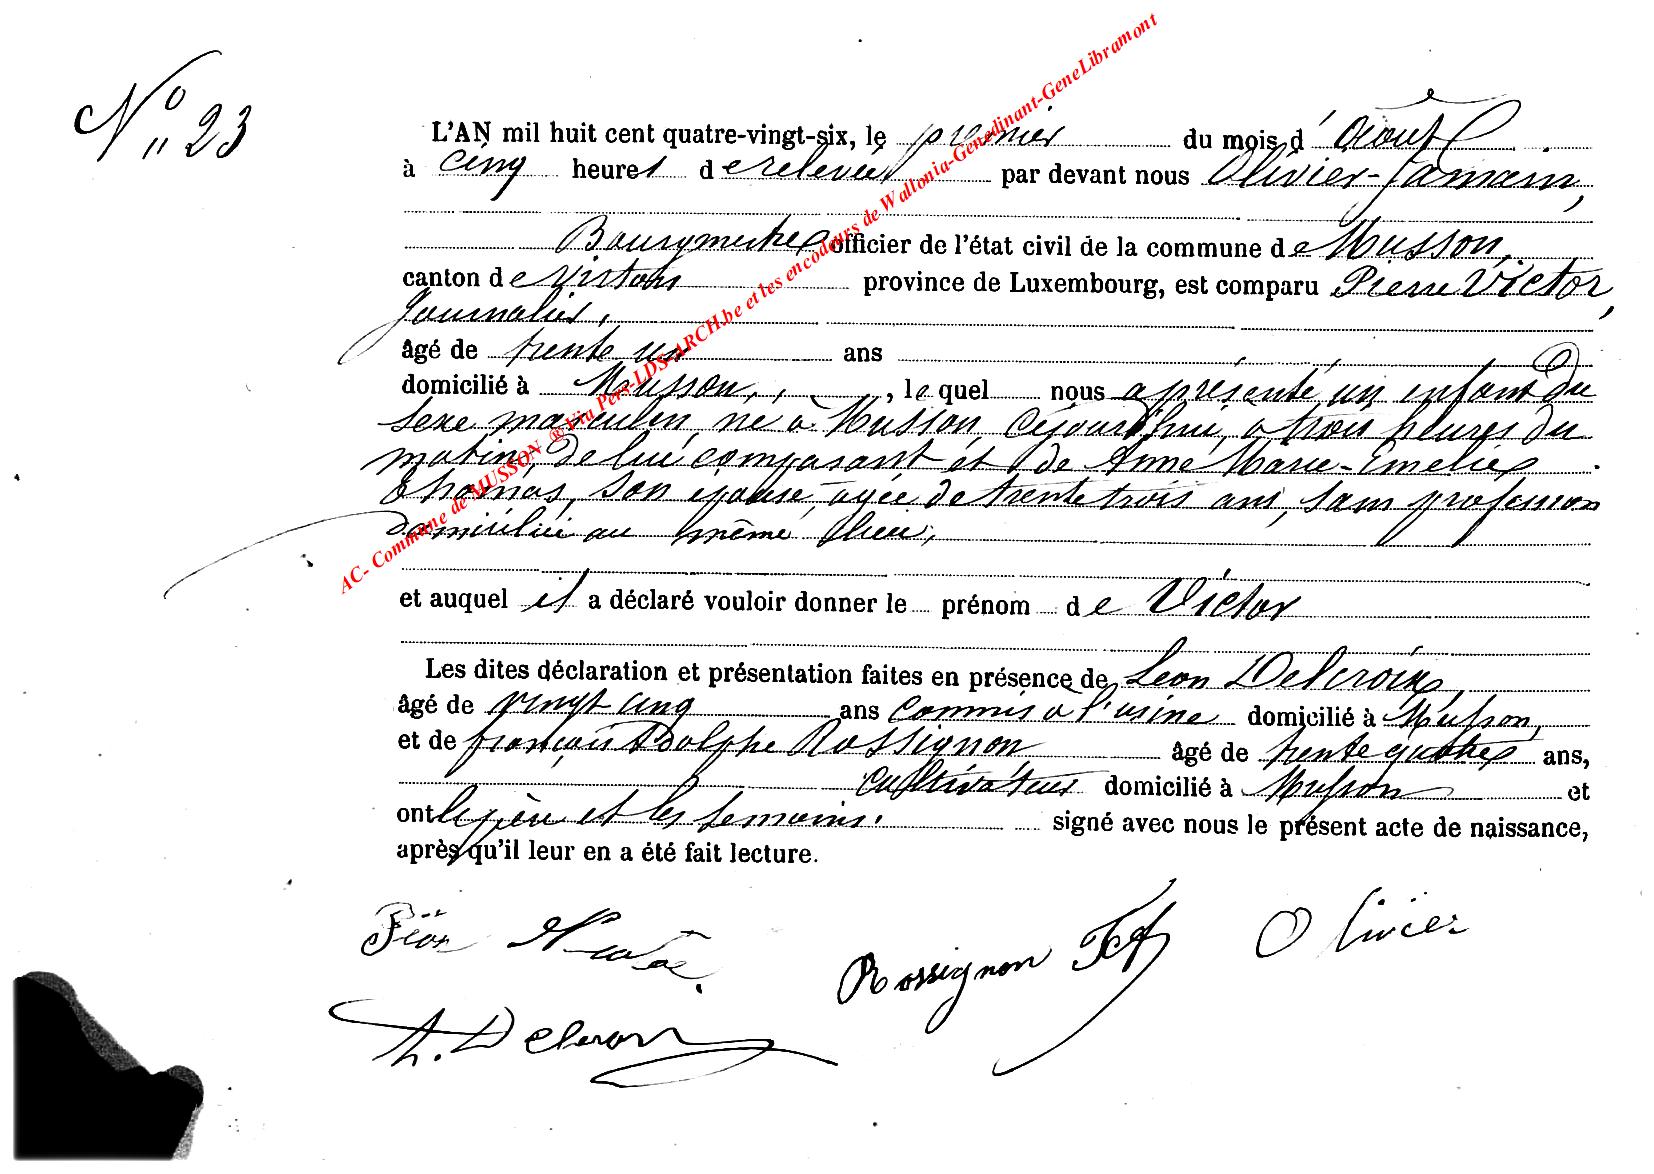 N° 23
L'AN mil huit cent quatre-vingt-six, le premier du mois d'août
à cinq heures de relevée par devant nous Olivier-Jamain,
Bourgmestre officier de l'état civil de la commune de Musson,
canton de Virton province de Luxembourg, est comparu Pierre Victor,
journalier,
âgé de trente un ans
domicilié à Musson, , lequel nous a présenté un enfant du
sexe masculin, né à Musson, cejourd'hui, à trois heures du
matin, de lui comparant et de Anne Marie-Emelie
Thomas, son épouse, âgée de trente trois ans, sans profession
domiciliée au même lieu,
et auquel il a déclaré vouloir donner le prénom de Victor
Les dites déclaration et présentation faites en présence de Léon Delcroix,
âgé de vingt cinq ans commis à l'usine domicilié à Musson,
et de françois Adolphe Rossignon âgé de trente quatre ans,
cultivateur domicilié à Musson et
ont le père et les témoins. signé avec nous le présent acte de naissance,
après qu'il leur en a été fait lecture.
Rossignon Olivier
AC- Commune de MUSSON ® Via Pers-LDS-ARCH.be et les encodeurs de Wallonia-Genedinant-GeneLibramont